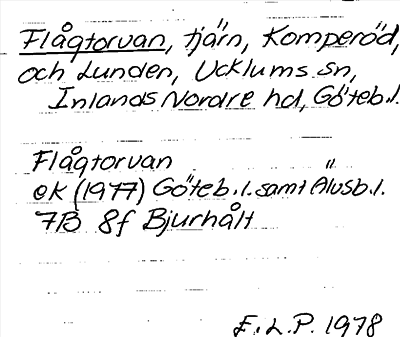 Flågtorvan, tjärn, Komperöd,
och Lunden, Ucklums sn,
Inlands Nordre hd, Göteb.l.
Flågtorvan
ek (1977) Göteb.l. samt Älvsb.l.
7B 8f Bjurhålt
E.L.P. 1978